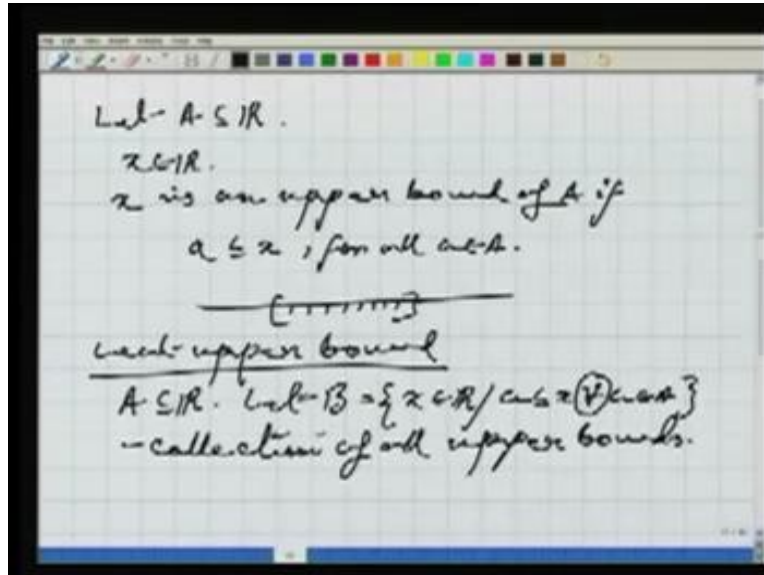 Let A ⊆ ℝ.
x ∈ ℝ.
x is an upper bound of A if
a ≤ x, for all a ∈ A.
Least upper bound
A ⊆ ℝ. Let B = {x ∈ ℝ / a ≤ x ∀ a ∈ A}
- collection of all upper bounds.